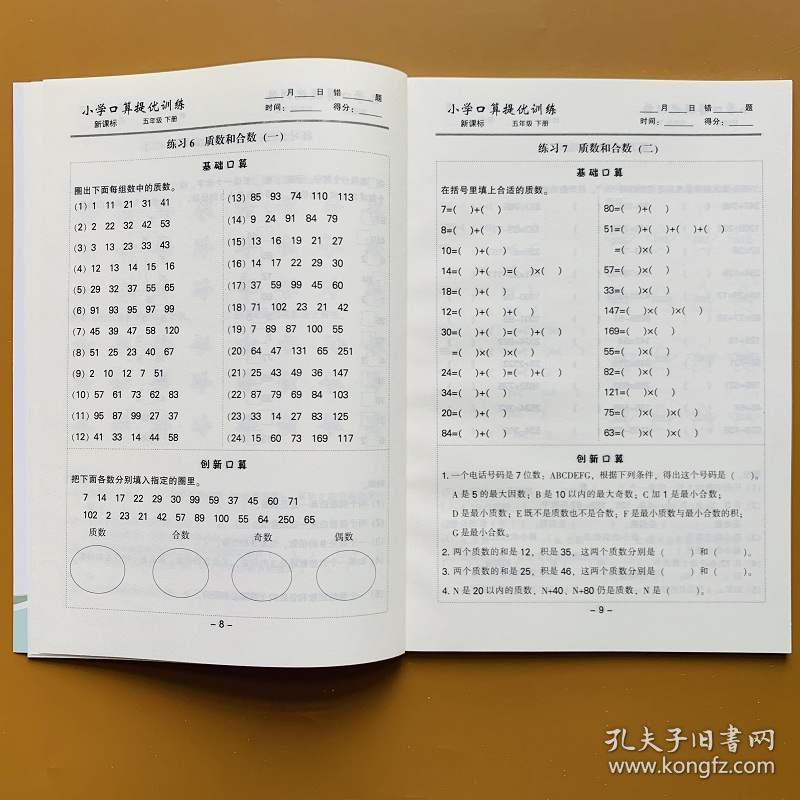 小学口算提优训练
新课标 五年级 下册
___月___日 错______题
时间：______ 得分：______
练习6 质数和合数（一）
基础口算
圈出下面每组数中的质数。
(1) 1 11 21 31 41
(2) 2 22 32 42 53
(3) 3 13 23 33 43
(4) 12 13 14 15 16
(5) 29 32 37 55 65
(6) 91 93 95 97 99
(7) 45 39 47 58 120
(8) 51 25 23 40 67
(9) 2 10 12 7 51
(10) 57 61 73 62 83
(11) 95 87 99 27 37
(12) 41 33 14 44 58
(13) 85 93 74 110 113
(14) 9 24 91 84 79
(15) 13 16 19 21 27
(16) 14 17 22 29 30
(17) 37 59 99 45 60
(18) 71 102 23 21 42
(19) 7 89 87 100 55
(20) 64 47 131 65 251
(21) 25 43 49 36 147
(22) 87 79 69 84 103
(23) 33 14 27 83 125
(24) 15 60 73 169 117
创新口算
把下面各数分别填入指定的圈里。
7 14 17 22 29 30 99 59 37 45 60 71
102 2 23 21 42 57 89 100 55 64 250 65
质数 合数 奇数 偶数
- 8 -
小学口算提优训练
新课标 五年级 下册
___月___日 错______题
时间：______ 得分：______
练习7 质数和合数（二）
基础口算
在括号里填上合适的质数。
7=( )+( )
8=( )+( )
10=( )+( )
14=( )+( )=( )×( )
18=( )+( )
12=( )+( )+( )
30=( )+( )=( )+( )
=( )×( )×( )
24=( )+( )=( )+( )
34=( )+( )
20=( )+( )
84=( )+( )
80=( )+( )
51=( )+( )+( )+( )
=( )×( )
57=( )×( )
33=( )×( )
147=( )×( )×( )
169=( )×( )
55=( )×( )
82=( )×( )
121=( )×( )
75=( )×( )×( )
63=( )×( )×( )
创新口算
1. 一个电话号码是7位数；ABCDEFG，根据下列条件，得出这个号码是（ ）。
A是5的最大因数；B是10以内的最大奇数；C加1是最小合数；
D是最小质数；E既不是质数也不是合数；F是最小质数与最小合数的积；
G是最小合数。
2. 两个质数的和是12，积是35，这两个质数分别是（ ）和（ ）。
3. 两个质数的和是25，积是46，这两个质数分别是（ ）和（ ）。
4. N是20以内的质数，N+40、N+80仍是质数，N是（ ）。
- 9 -
孔夫子旧书网
www.kongfz.com